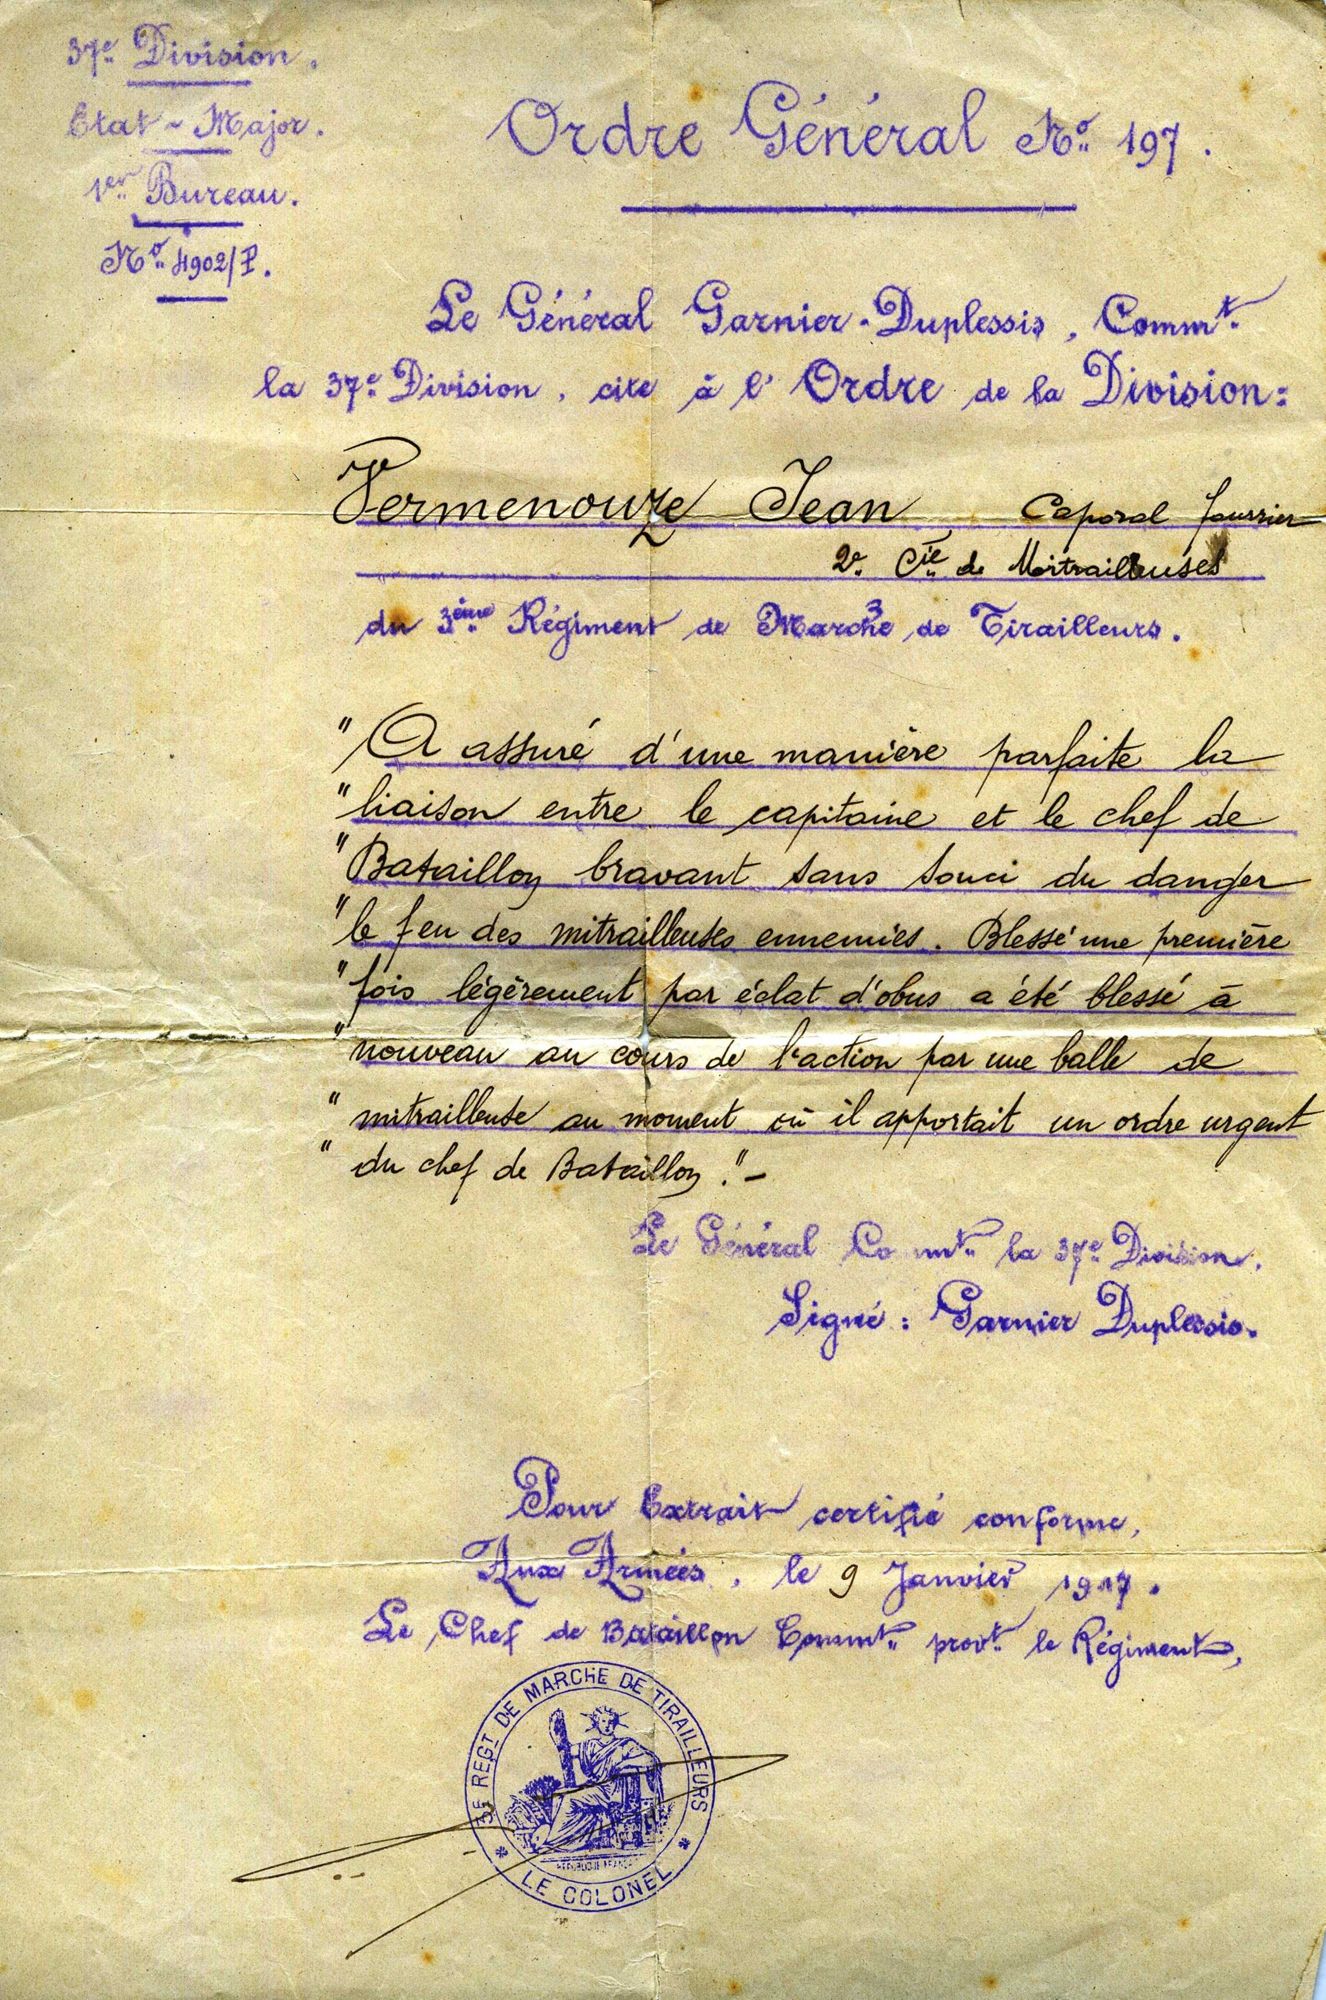 37e Division.
Etat-Major.
1er Bureau.
No 4902/P.
Ordre Général No 197.
Le Général Garnier-Duplessis, Commt
la 37e Division, cite à l'Ordre de la Division:
Vermenouze Jean Caporal fourrier
2e Cie de Mitrailleuses
du 3ème Régiment de Marche de Tirailleurs.
3
"A assuré d'une manière parfaite la
"liaison entre le capitaine et le chef de
"Bataillon bravant sans souci du danger
"le feu des mitrailleuses ennemies. Blessé une première
"fois légèrement par éclat d'obus a été blessé à
"nouveau au cours de l'action par une balle de
"mitrailleuse au moment où il apportait un ordre urgent
"du chef de Bataillon."-
Le Général Commt la 37e Division.
Signé: Garnier Duplessis.
Pour Extrait certifié conforme,
Aux Armées, le 9 Janvier 1917.
Le Chef de Bataillon Commt provt le Régiment,
3E REGT DE MARCHE DE TIRAILLEURS
* LE COLONEL *